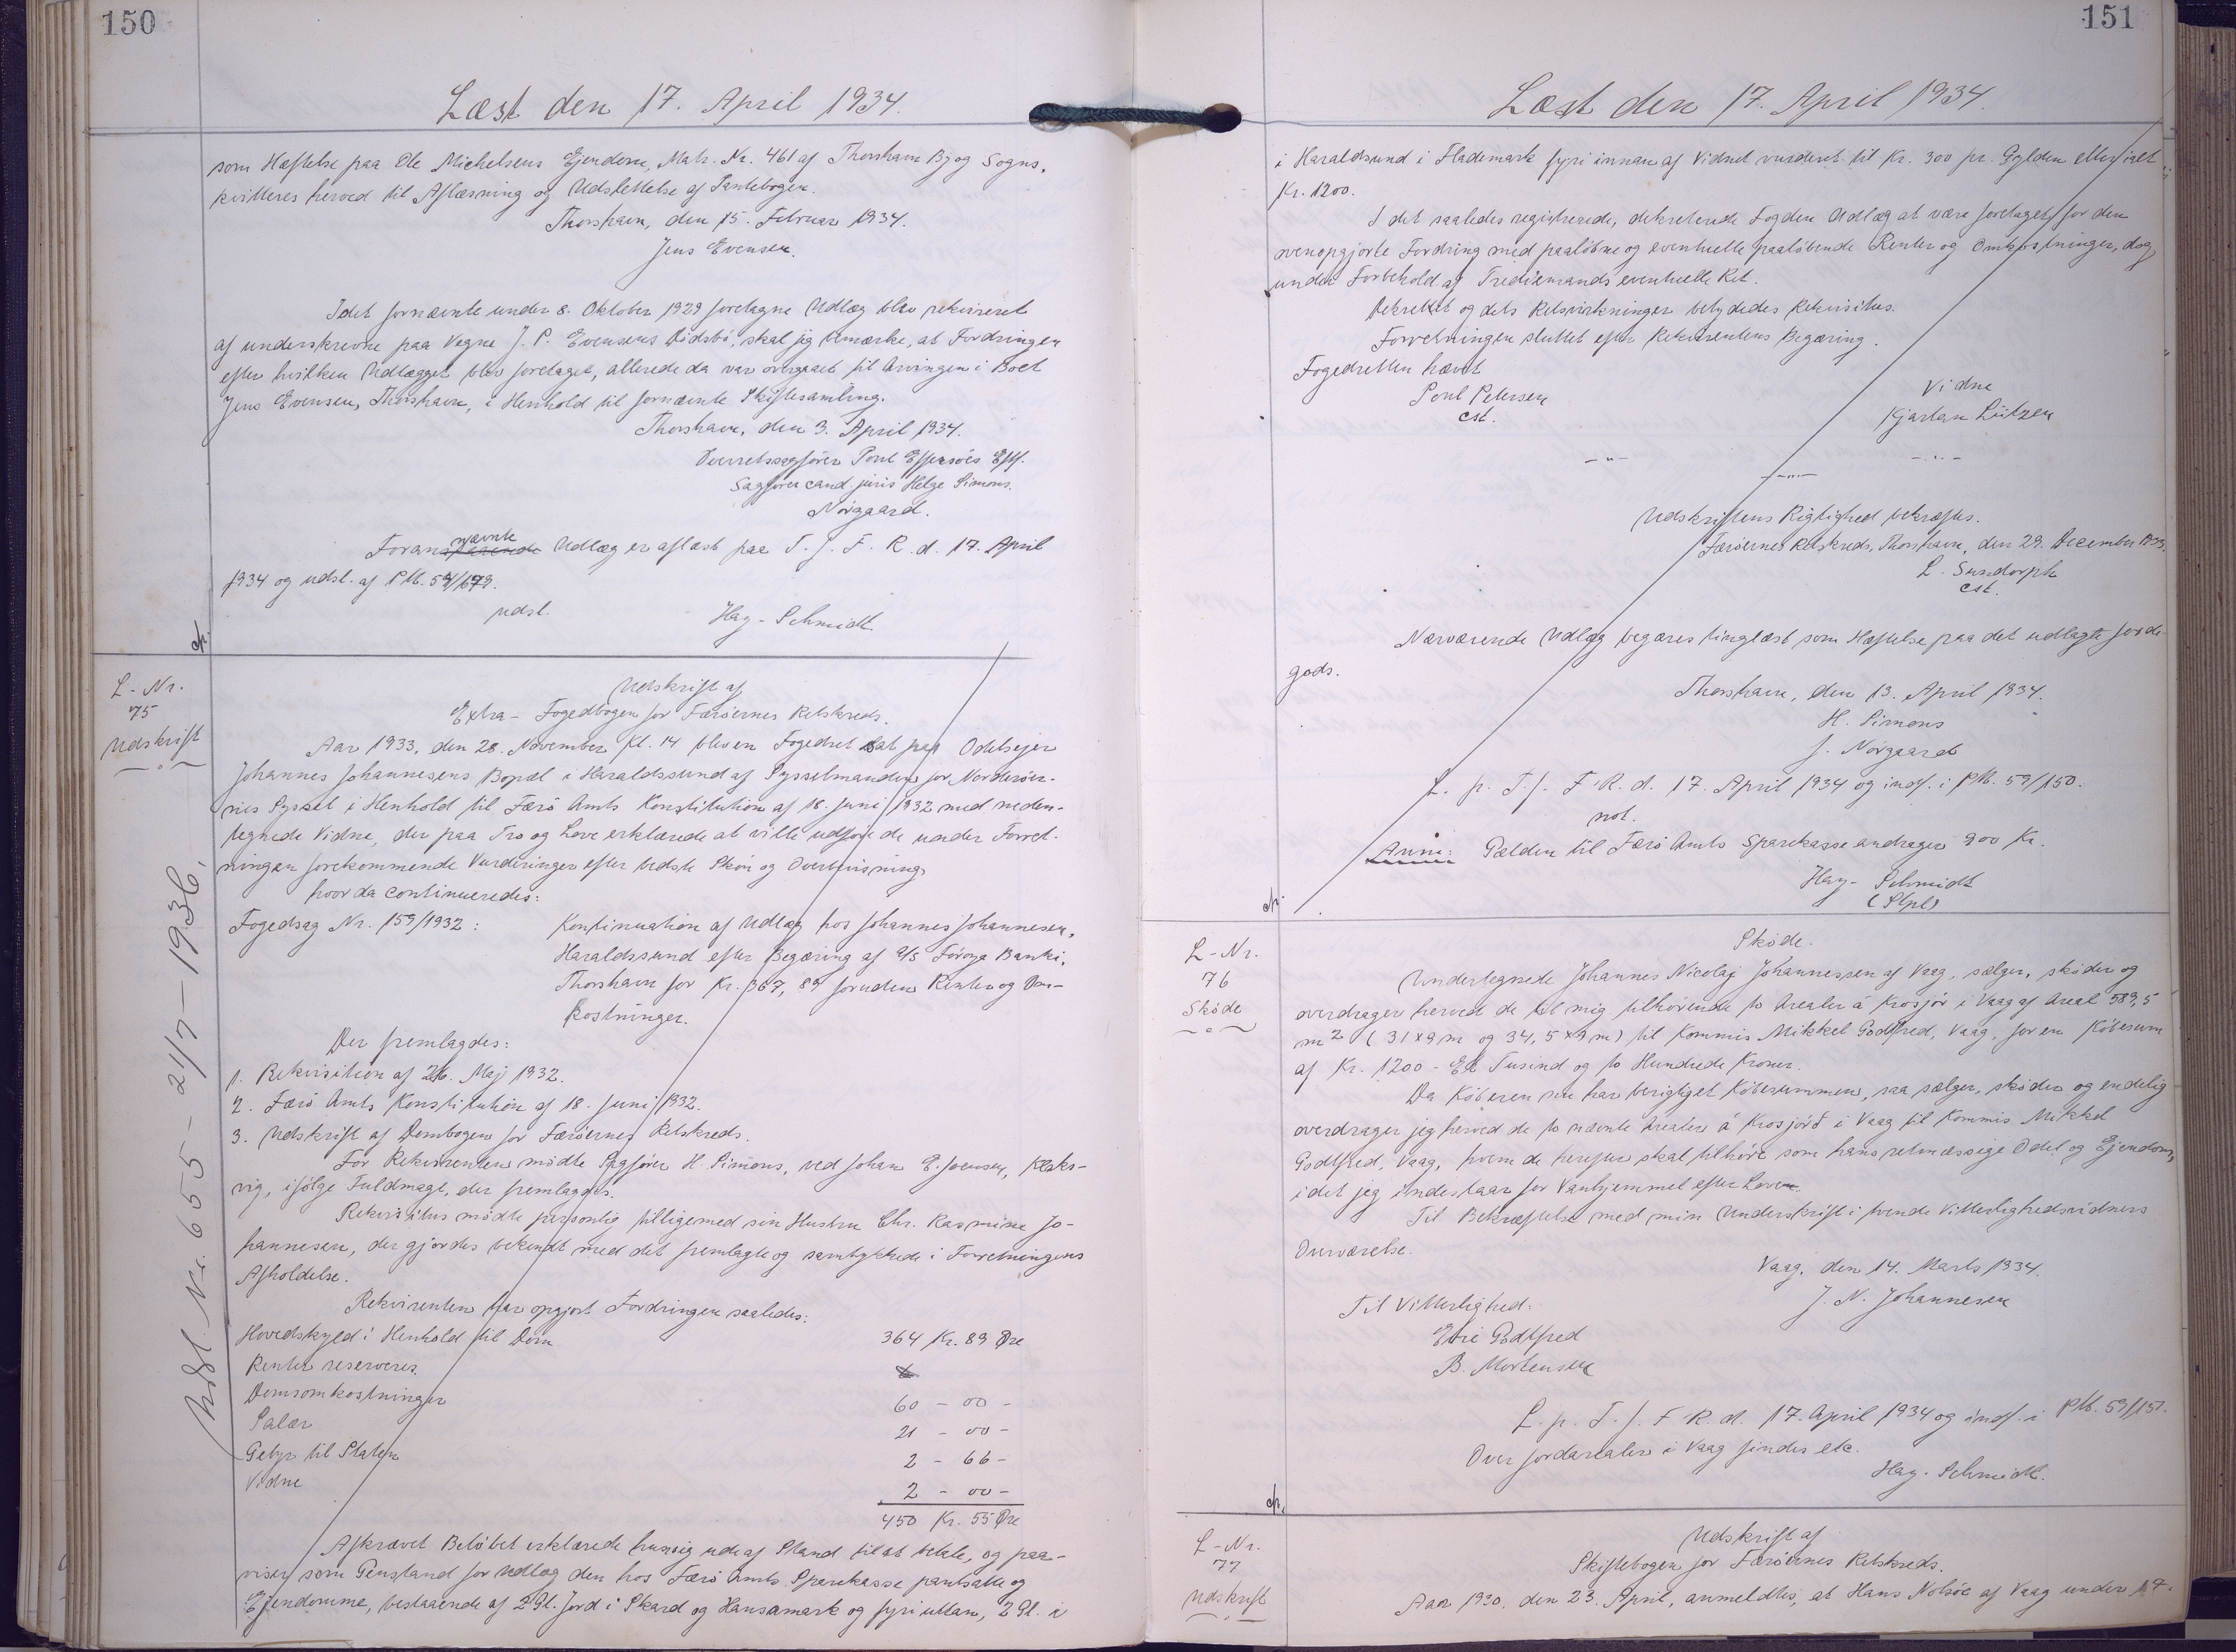 150
Læst den 17. April 1934.
som Hæftelse paa Ole Michelsens Ejendom, Matr. Nr. 461 af Thorshavn By og Sogns,
kvitteres herved til Aflæsning og Udslettelse af Pantebogen.
Thorshavn, den 15. Februar 1934.
Jens Evensen.
I det fornævnte under 8. Oktober 1929 foretagne Udlæg blev rekvireret
af underskrevne paa Vegne J. P. Evensens Dødsbo, skal jeg bemærke, at Fordringen
efter hvilken Udlægget blev foretaget, allerede da var overgaaet til Arvingen i Boet
Jens Evensen, Thorshavn, i Henhold til fornævnte Skiftesamling.
Thorshavn, den 3. April 1934.
Overretssagfører Poul Effersøes Eftf.
Sagfører cand. juris Helge Simons.
Nørgaard.
Forannævnte Udlæg er aflæst paa T. f. F. R. d. 17. April
1934 og udsl. af PM. 54/679.
udsl.
Hag-Schmidt
cfr.
L-Nr.
75
Udskrift
Udsl. Nr. 655 - 21/7 - 1936.
Udskrift af
Extra-Fogedbogen for Færøernes Retskreds.
Aar 1933, den 28. November Kl. 14 blev en Fogedret sat paa Odelsejer
Johannes Johannesens Bopæl i Haraldssund af Sysselmanden for Norderøer-
nes Syssel i Henhold til Færø Amts Konstitution af 18. Juni 1932 med neden-
tegnede Vidne, der paa Tro og Love erklærede at ville udføre de under Forret-
ningen forekommende Vurderinger efter bedste Skøn og Overbevisning,
hvor da continueredes:
Fogedsag Nr. 159/1932: Kontinuation af Udlæg hos Johannes Johannesen,
Haraldssund efter Begæring af A/S Føroya Banki,
Thorshavn for Kr. 367,89 foruden Renter og Om-
kostninger.
Der fremlagdes:
1. Rekvisition af 26. Maj 1932.
2. Færø Amts Konstitution af 18. Juni 1932.
3. Udskrift af Dombogen for Færøernes Retskreds.
For Rekvirenten mødte Sagfører H. Simons, ved Johan E. Joensen, Klaks-
vig, ifølge Fuldmagt, der fremlagdes.
Rekvisitus mødte personlig tilligemed sin Hustru Chr. Rasmine Jo-
hannesen, der gjordes bekendt med det fremlagte og samtykkede i Forretningens
Afholdelse.
Rekvirenten har opgjort Fordringen saaledes:
Hovedskyld i Henhold til Dom 364 Kr. 89 Øre
Renter reserveres.
Domsomkostninger 60 - 00 -
Salær 21 - 00 -
Gebyr til Staten 2 - 66 -
Vidne 2 - 00 -
450 Kr. 55 Øre
Afkrævet Beløbet erklærede hun sig ude af Stand til at betale, og paa-
viser som Genstand for Udlæg den hos Færø Amts Sparekasse pantsatte og
Ejendomme, bestaaende af 2 Gl. Jord i Skard og Hansamark og fyri uttan, 2 Gl. i
151
Læst den 17. April 1934.
i Haraldsund i Hademark fyri innan af Vidnet vurderet til Kr. 300 pr. Gylden eller ialt
Kr. 1200.
I det saaledes registrerede, dekreterede Fogden Udlæg at være foretaget for den
ovenopgjorte Fordring med paaløbne og eventuelle paaløbende Renter og Omkostninger, dog
under Forbehold af Trediemands eventuelle Ret.
Dekretet og dets Retsvirkninger betydedes Rekvisitus.
Forretningen sluttet efter Rekvirentens Begæring.
Fogedretten hævet
Poul Petersen
cst.
Vidne
Kjartan Lützen
Udskriftens Rigtighed bekræftes.
Færøernes Retskreds, Thorshavn, den 29. December 1933.
L. Sundorph
cst.
Nærværende Udlæg begæres tinglæst som Hæftelse paa det udlagte Jorde-
gods.
Thorshavn, den 13. April 1934.
H. Simons
J. Nørgaard
L. p. T. f. F. R. d. 17. April 1934 og indf. i PM. 59/150.
not.
Anm: Gælden til Færø Amts Sparekasse andrager 900 Kr.
Hag-Schmidt
(Stpl)
cfr.
L-Nr.
76
Skøde
Skøde.
Undertegnede Johannes Nicolaj Johannessen af Vaag, sælger, skøder og
overdrager herved de til mig tilhørende to Arealer á Krosjør i Vaag af Areal 589,5
m2 (31x9m og 34,5x9m) til Kommis Mikkel Godtfred, Vaag, for en Købesum
af Kr. 1200 - Et Tusind og to Hundrede Kroner.
Da Køberen nu har berigtiget Købesummen, saa sælger, skøder og endelig
overdrager jeg herved de to nævnte Arealer á Krosjørð i Vaag til Kommis Mikkel
Godtfred, Vaag, hvem de herefter skal tilhøre som hans retmæssige Odel og Ejendom,
i det jeg indestaar for Vanhjemmel efter Loven.
Til Bekræftelse med min Underskrift i tvende Vitterlighedsvidners
Overværelse.
Vaag, den 14. Marts 1934.
J. N. Johannesen
Til Vitterlighed:
Godtfred
B. Mortensen
L. p. T. f. F. R. d. 17. April 1934 og indf. i PM. 59/151.
Over Jordarealer i Vaag findes etc.
Hag-Schmidt.
cfr.
L-Nr.
77
Udskrift
Udskrift af
Skiftebogen for Færøernes Retskreds.
Aar 1930, den 23. April, anmeldtes, at Hans Nolsøe af Vaag under 17.